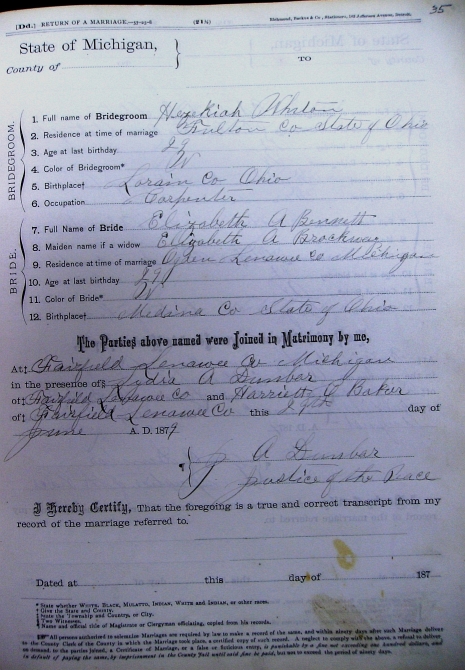 35
[Dd.] RETURN OF A MARRIAGE.
State of Michigan,
County of
TO
BRIDEGROOM.
1. Full name of Bridegroom Hezekiah Whaton
2. Residence at time of marriage Fulton Co State of Ohio
3. Age at last birthday 29
4. Color of Bridegroom* W
5. Birthplace† Lorain Co Ohio
6. Occupation Carpenter
BRIDE.
7. Full Name of Bride Elizabeth A Bennett
8. Maiden name if a widow Elizabeth A Brockway
9. Residence at time of marriage Ogden Lenawee Co Michigan
10. Age at last birthday 29
11. Color of Bride* W
12. Birthplace† Medina Co State of Ohio
The Parties above named were Joined in Matrimony by me,
At‡ Fairfield Lenawee Co Michigan
in the presence of§ Lydia A Dunbar
of‡ Fairfield Lenawee Co and Harriett Baker
of‡ Fairfield Lenawee Co this day of
June A. D. 1879
A Dunbar
Justice of the Peace
I Hereby Certify, That the foregoing is a true and correct transcript from my
record of the marriage referred to.
Dated at this day of 187
* State whether WHITE, BLACK, MULATTO, INDIAN, WHITE AND INDIAN, or other races.
† Give the State and County.
‡ State the Township and County, or City.
§ Two Witnesses.
Name and official title of Magistrate or Clergyman officiating, copied from his records.
All persons authorized to solemnize Marriages are required by law to make a record of the same, and within ninety days after such Marriage deliver
to the County Clerk of the County in which the Marriage took place, a certified copy of such record. A neglect to comply with the above, a refusal to deliver
on demand, to the parties joined, a Certificate of Marriage, or a false or fictitious entry, is punishable by a fine not exceeding one hundred dollars, and
in default of paying the same, by imprisonment in the County Jail until said fine be paid, but not to exceed the period of ninety days.